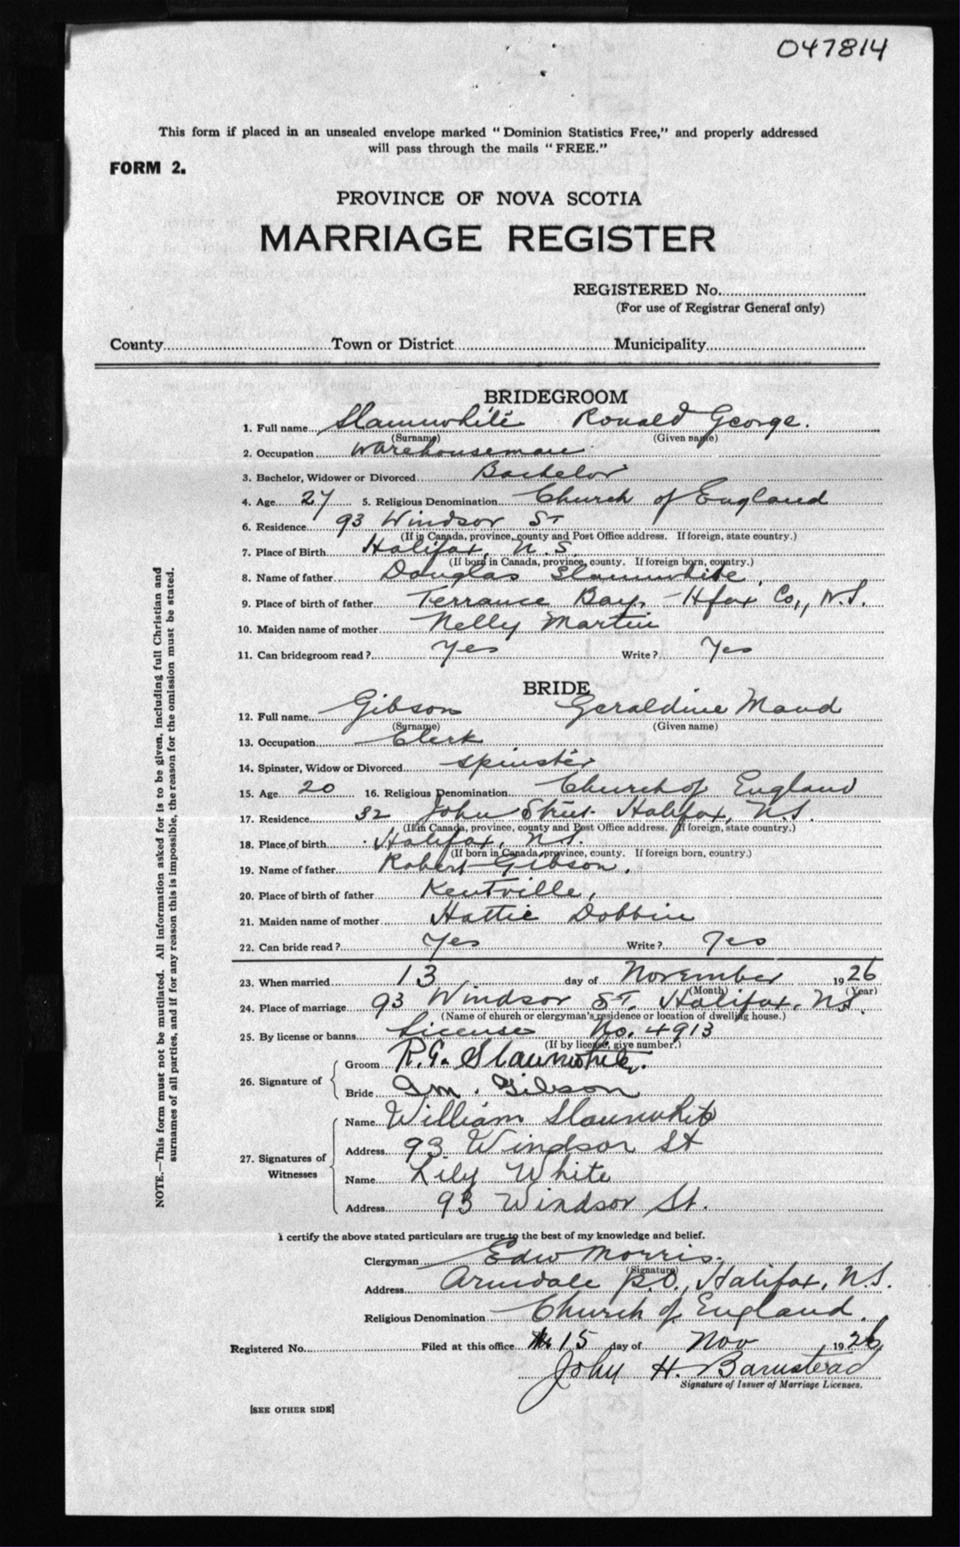 047814
This form if placed in an unsealed envelope marked "Dominion Statistics Free," and properly addressed
will pass through the mails "FREE."
FORM 2.
PROVINCE OF NOVA SCOTIA
MARRIAGE REGISTER
REGISTERED No.
(For use of Registrar General only)
County Town or District Municipality
BRIDEGROOM
1. Full name Slaunwhite Ronald George.
(Surname) (Given name)
2. Occupation Warehouseman
3. Bachelor, Widower or Divorced Bachelor
4. Age 27 5. Religious Denomination Church of England
6. Residence 93 Windsor St
(If in Canada, province, county and Post Office address. If foreign, state country.)
7. Place of Birth Halifax, N.S.
(If born in Canada, province, county. If foreign born, country.)
8. Name of father Douglas Slaunwhite.
9. Place of birth of father Terrance Bay, Hfax Co., N.S.
10. Maiden name of mother Nelly Martin
11. Can bridegroom read? Yes Write? Yes
BRIDE
12. Full name Gibson Geraldine Maud
(Surname) (Given name)
13. Occupation Clerk
14. Spinster, Widow or Divorced Spinster
15. Age 20 16. Religious Denomination Church of England
17. Residence 32 John Street Halifax, N.S.
(If in Canada, province, county and Post Office address. If foreign, state country.)
18. Place of birth Halifax, N.S.
(If born in Canada, province, county. If foreign born, country.)
19. Name of father Robert Gibson.
20. Place of birth of father Kentville,
21. Maiden name of mother Hattie Dobbin
22. Can bride read? Yes Write? Yes
23. When married 13 day of November 1926
(Month) (Year)
24. Place of marriage 93 Windsor St. Halifax, N.S.
(Name of church or clergyman's residence or location of dwelling house.)
25. By license or banns License No. 4913
(If by license, give number.)
26. Signature of Groom R.G. Slaunwhite.
Bride G.M. Gibson
27. Signatures of Witnesses Name William Slaunwhite
Address 93 Windsor St
Name Lily White
Address 93 Windsor St.
I certify the above stated particulars are true to the best of my knowledge and belief.
Clergyman Edw Morris.
(Signature)
Address Armdale P.O., Halifax, N.S.
Religious Denomination Church of England.
Registered No. Filed at this office 15 day of Nov 1926
John H. Barnstead
Signature of Issuer of Marriage Licenses.
[SEE OTHER SIDE]
NOTE.—This form must not be mutilated. All information asked for is to be given, including full Christian and
surnames of all parties, and if for any reason this is impossible, the reason for the omission must be stated.